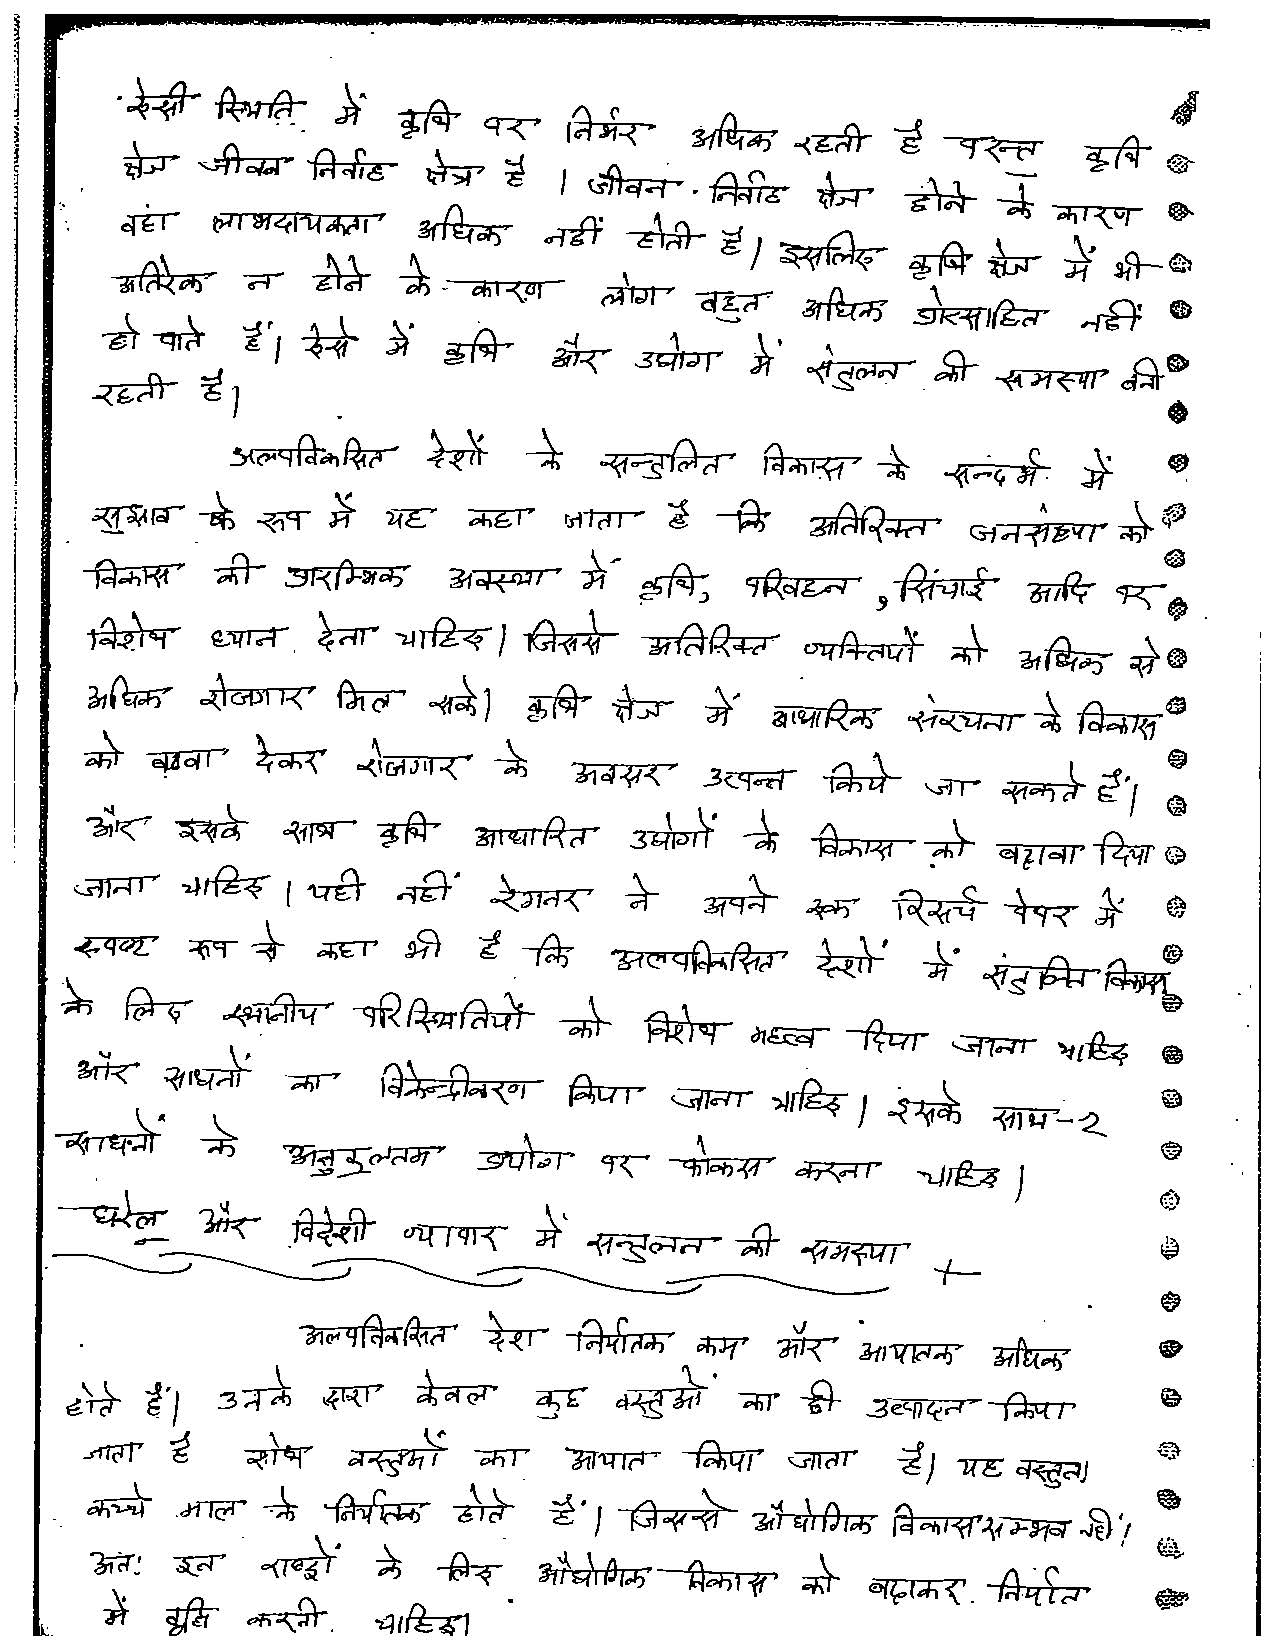 ऐसी स्थिति में कृषि पर निर्भर अधिक रहती है परन्तु कृषि
क्षेत्र जीवन निर्वाह क्षेत्र है । जीवन निर्वाह क्षेत्र होने के कारण
वहां लाभदायकता अधिक नहीं होती है। इसलिए कृषि क्षेत्र में भी
अतिरेक न होने के कारण लोग बहुत अधिक प्रोत्साहित नहीं
हो पाते हैं। ऐसे में कृषि और उद्योग में संतुलन की समस्या बनी
रहती है।
अल्पविकसित देशों के सन्तुलित विकास के सन्दर्भ में
सुझाव के रूप में यह कहा जाता है कि अतिरिक्त जनसंख्या को
विकास की प्रारम्भिक अवस्था में कृषि, परिवहन, सिंचाई आदि पर
विशेष ध्यान देना चाहिए। जिससे अतिरिक्त व्यक्तियों को अधिक से
अधिक रोजगार मिल सके। कृषि क्षेत्र में आधारिक संरचना के विकास
को बढवा देकर रोजगार के अवसर उत्पन्न किये जा सकते हैं।
और इसके साथ कृषि आधारित उद्योगों के विकास को बढ़ावा दिया
जाना चाहिए। यही नहीं रेगनर ने अपने एक रिसर्च पेपर में
स्पष्ट रूप से कहा भी है कि अल्पविकसित देशों में संतुलित विकास
के लिए स्थानीय परिस्थितियों को विशेष महत्व दिया जाना चाहिए
और साधनों का विकेन्द्रीकरण किया जाना चाहिए। इसके साथ-२
साधनों के अनुकूलतम उपयोग पर फोकस करना चाहिए।
घरेलू और विदेशी व्यापार में सन्तुलन की समस्या
अल्पविकसित देश निर्यातक कम और आयातक अधिक
होते हैं। उनके द्वारा केवल कुछ वस्तुओं का ही उत्पादन किया
जाता है शेष वस्तुओं का आयात किया जाता है। यह वस्तुतः
कच्चे माल के निर्यातक होते हैं। जिससे औद्योगिक विकास सम्भव नहीं।
अतः इन राष्ट्रों के लिए औद्योगिक विकास को बढ़ाकर निर्यात
में वृद्धि करनी चाहिए।